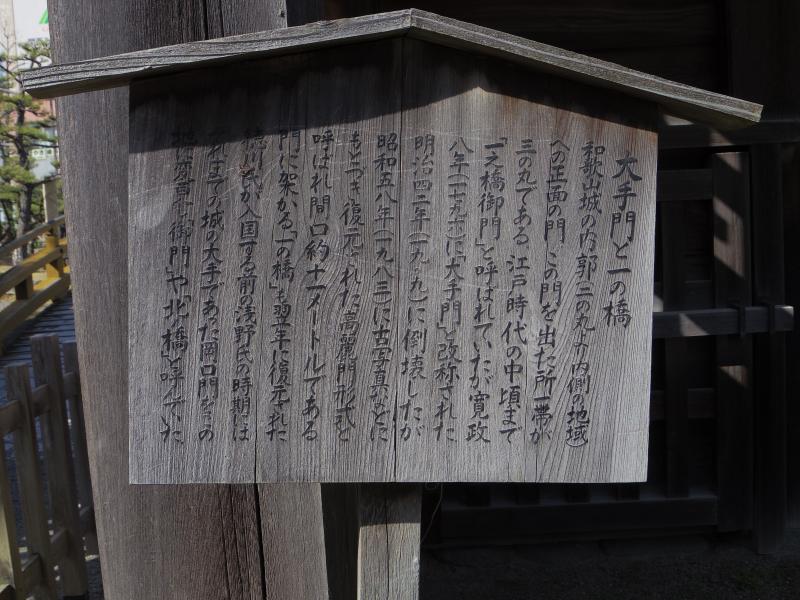 大手門と一の橋
和歌山城の内郭(二の丸より内側の地域)
への正面の門、この門を出た所一帯が
三の丸である 江戸時代の中頃まで
「一之橋御門」と呼ばれていたが寛政
八年(一七九六)に「大手門」と改称された
明治四二年(一九〇九)に倒壊したが
昭和五八年(一九八三)に古写真などに
もとづき復元された高麗門形式と
呼ばれ間口約十一メートルである
門に架かる「一の橋」も翌年に復元された
徳川氏が入国する前の浅野氏の時期には
それまでの城の大手であった岡口門をこの
御門」や「北ノ橋」と呼んでいた